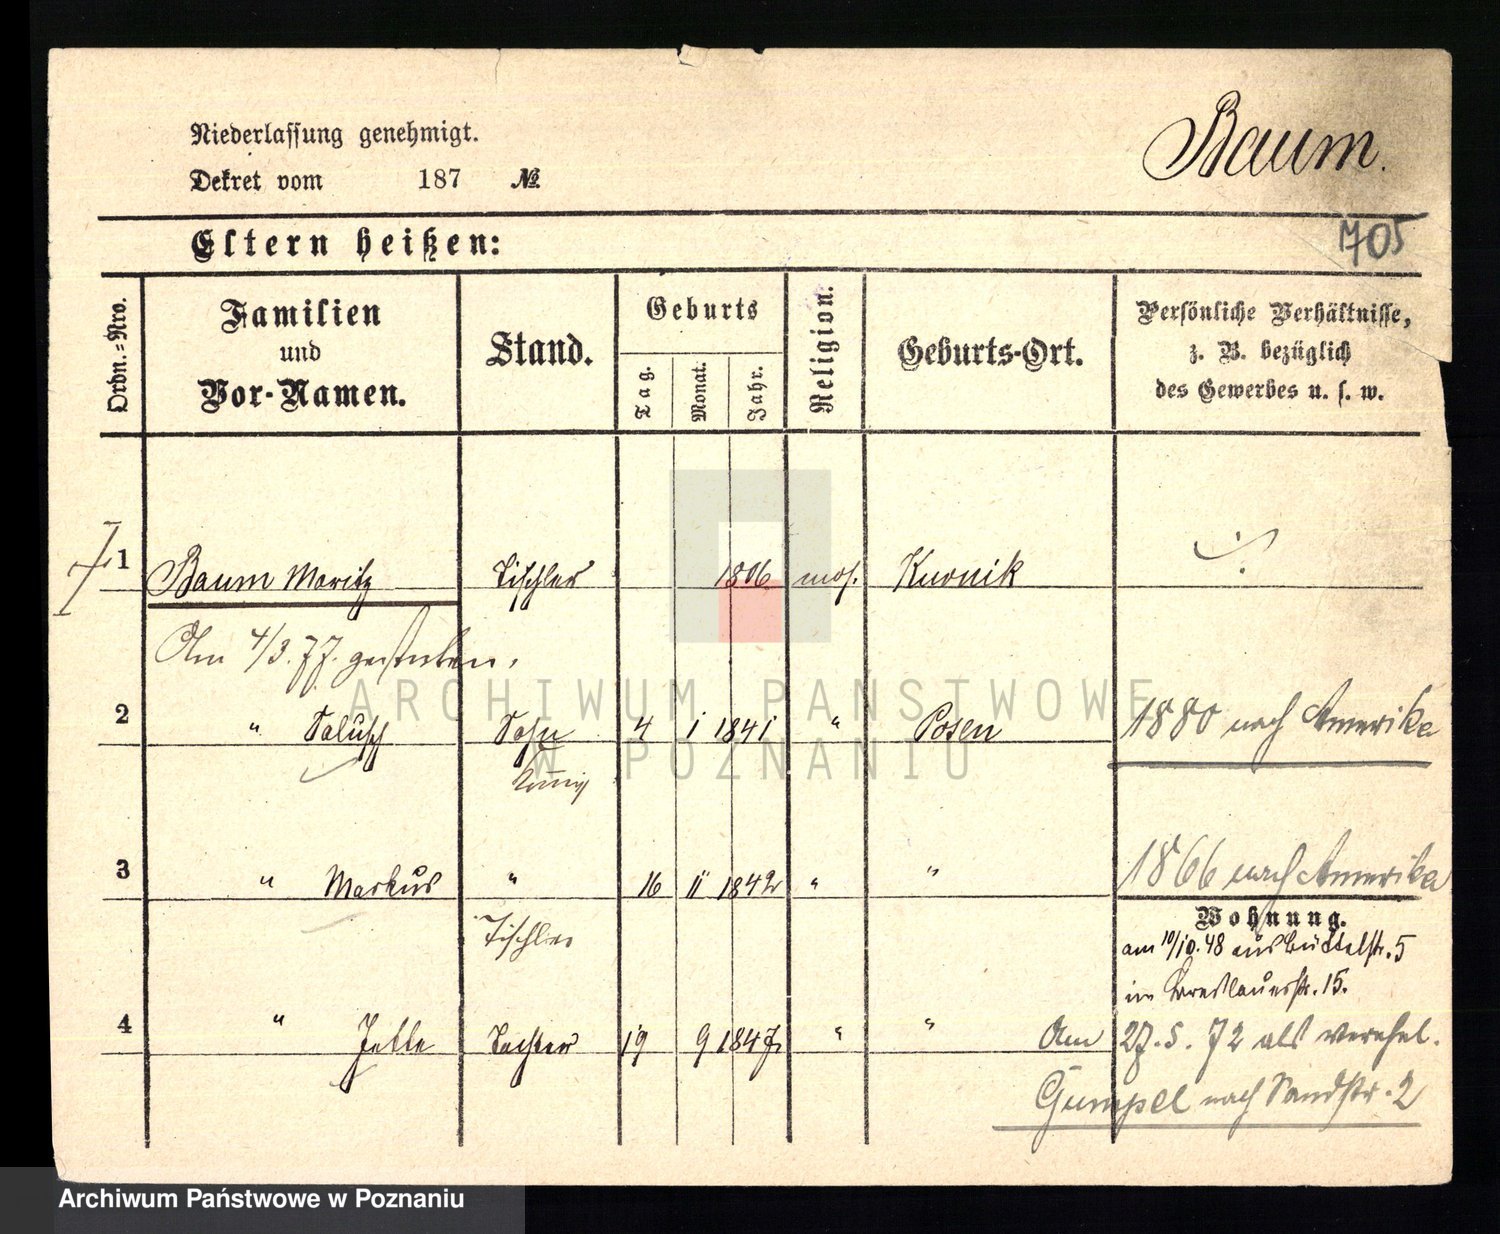 Niederlassung genehmigt.
Dekret vom 187 №
Baum.
705
Eltern heißen:
Ordn.-Nro.
Familien und Vor-Namen.
Stand.
Geburts
Tag.
Monat.
Jahr.
Religion.
Geburts-Ort.
Persönliche Verhältnisse,
z. B. bezüglich
des Gewerbes u. s. w.
1 Baum Moritz Tischler 1806 mos. Kurnik
Am 4/3.77. gestorben.
2 " Salusch Sohn 4 1 1841 " Posen 1880 nach Amerika
3 " Markus " 16 11 1842 " " 1866 nach Amerika
Tischler
Wohnung.
am 10/10.48 aus Büttelstr. 5
in Breslauerstr. 15.
4 " Jette Tochter 19 9 1847 " " Am 27.5.72 als verehel.
Gumpel nach Sandstr. 2
ARCHIWUM PAŃSTWOWE
W POZNANIU
Archiwum Państwowe w Poznaniu